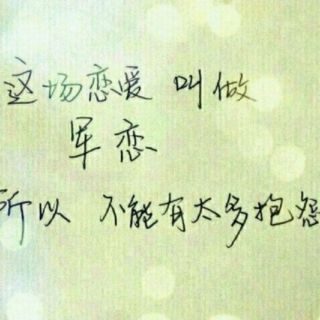 这场恋爱 叫做
军恋
所以 不能有太多抱怨